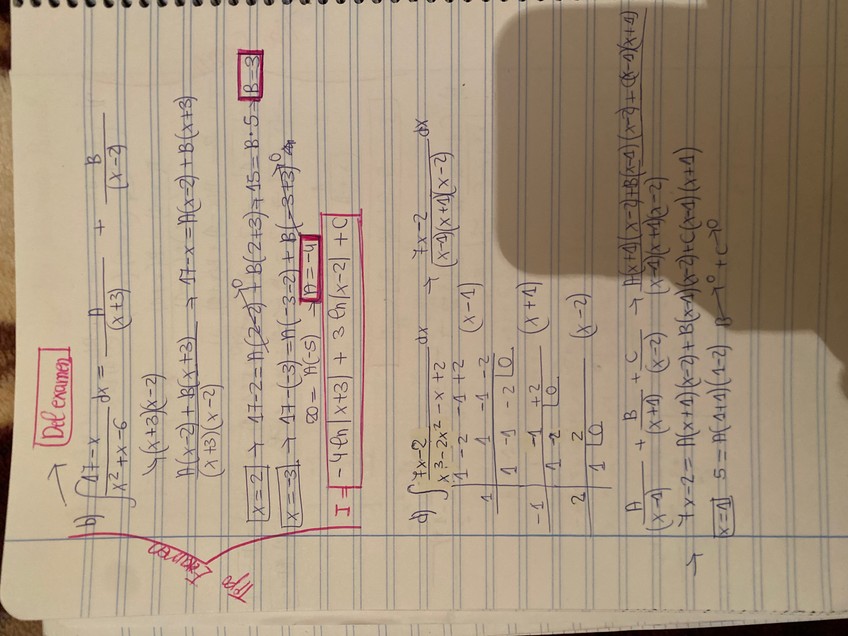 → Del examen
b) ∫ 17-x / x²+x-6 dx = A / (x+3) + B / (x-2)
↳ (x+3)(x-2)
A(x-2) + B(x+3) / (x+3)(x-2) → 17-x = A(x-2) + B(x+3)
x=2 → 17-2 = A(2-2)→0 + B(2+3) → 15 = B·5 → B=3
x=-3 → 17-(-3) = A(-3-2) + B(-3+3)→0
20 = A(-5) → A=-4
I = -4 ln|x+3| + 3 ln|x-2| + C
Tipo Examen
c) ∫ 7x-2 / x³-2x²-x+2 dx → 7x-2 / (x-1)(x+1)(x-2) dx
1 -2 -1 +2
1 1 -1 -2 (x-1)
1 -1 -2 0
-1 -1 +2 (x+1)
1 -2 0
2 2 (x-2)
1 0
A / (x-1) + B / (x+1) + C / (x-2) → A(x+1)(x-2)+B(x-1)(x-2)+C(x-1)(x+1) / (x-1)(x+1)(x-2)
→ 7x-2 = A(x+1)(x-2)+B(x-1)(x-2)+C(x-1)(x+1)
x=1 5 = A(1+1)(1-2) B→0 + C→0